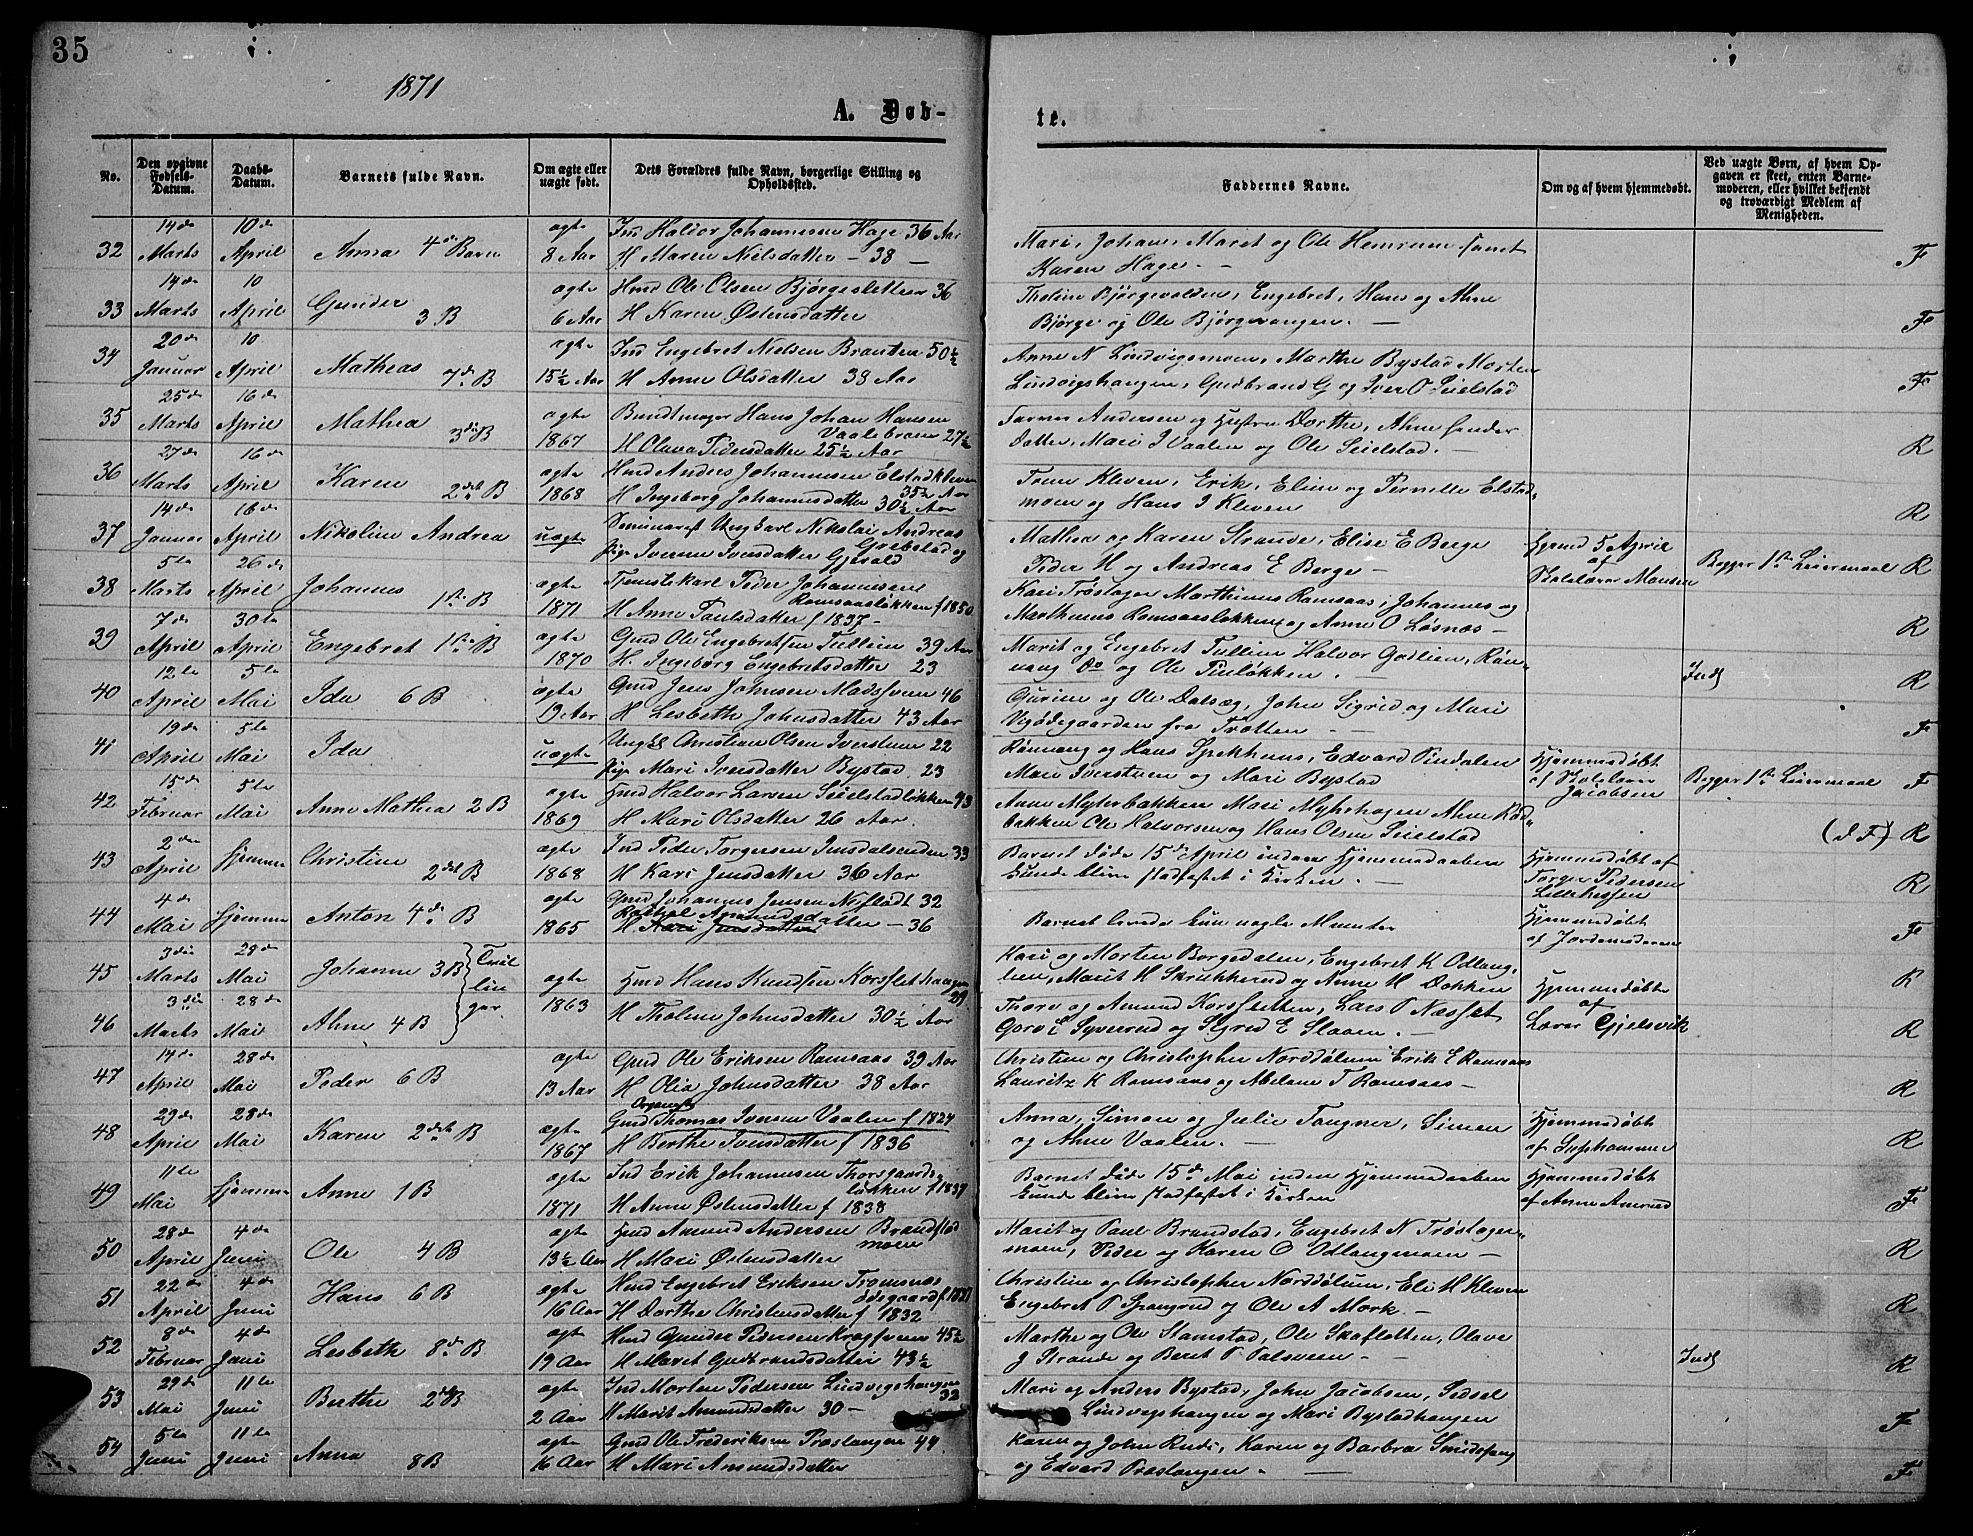 35
1871
A. Døb-
te.
No.
Den opgivne Fødsels-Datum.
Daabs-Datum.
Barnets fulde Navn.
Om ægte eller uægte født.
Dets Forældres fulde Navn, borgerlige Stilling og Opholdssted.
Faddernes Navne.
Om og af hvem hjemmedøbt.
Ved uægte Børn, af hvem Opgaven er skeet, enten Barnemoderen, eller hvilket bekjendt og troværdigt Medlem af Menigheden.
32 14de Marts 10de April Anna 4de Barn ægte 8 Aar
Ind Haldor Johannesen Hage 36 Aar
H Maren Nielsdatter - 38 -
Mari, Johan, Maret og Ole Hemrum samt
Karen Hage. - F
33 14de Marts 10 April Gunder 3 B ægte 6 Aar
Hmd Ole Olsen Bjørgesletten 36
H Karen Østensdatter
Tholine Bjørgevolden, Engebret, Hans og Ahne
Bjørge og Ole Bjørgevangen. - F
34 20de Januar 10 April Matheas 7de B ægte 15½ Aar
Ind Engebret Nielsen Braaten 50½
H Anne Olsdatter 38 Aar
Anne N Lindvigsmoen, Marthe Bystad Morten
Lindvigshaugen, Gudbrand G og Iver O Seielstad F
35 25de Marts 16de April Mathea 3die B ægte 1867
Bundtmager Hans Johan Hansen
Vaalebroen 27½
H Olava Pedersdatter 25½ Aar
Farver Andersen og Hustru Dorthe, Ahne Sander
Datter, Mari I Vaalen og Ole Seielstad. - R
36 27de Marts 16de April Karen 2det B ægte 1868
Hmd Andres Johannesen Elstadkleven
35½ Aar
H Ingeborg Johannesdatter 30½ Aar
Trem Kleven, Erik, Elim og Pernille Elstad-
moen og Hans I Kleven R
37 14de Januar 16de April Nikoline Andrea uægte
Seminarist Ungkarl Nikolai Andreas
Grebstad og
Pige Iverine Iversdatter Gjevald
Mathea og Karen Strande, Elise E Berge
Peder H og Andreas E Berge -
Hjemd 5 April
af
Skolelærer Monsen
Begges 1ste Leiermaal R
38 5te Marts 26de April Johannes 1ste B ægte 1871
Tjenestekarl Peder Johannesen
Ramsaasløkken f 1850
H Anne Paulsdatter f 1837 -
Kari Trøstager Marthinus Ramsaas, Johannes og
Marthinus Ramsaasløkken og Anne O Løsnæs - R
39 7de April 30te April Engebret 1ste B ægte 1870
Gmd Ole Engebretsen Tullien 39 Aar
H. Ingeborg Engebretsdatter 23
Marit og Engebret Tullien Halvor Godlien, Røn-
naug Do og Ole Tuuløkken. - Inds R
40 12te April 5te Mai Ida 6 B ægte 19 Aar
Gmd Jens Johnsen Madssveen 46
H Lesbeth Johnsdatter 43 Aar
Gurine og Ole Dalsæg, John Sigrid og Mari
Vigødegaarden fra Trætten - F
41 19de April 5te Mai Ida uægte
Ungks Christian Olsen Iverstuen 22
Pige Mari Iversdatter Bystad 23
Rønnaug og Hans Spekhus, Edvard Pindalen
Mari Iverstuen og Mari Bystad
Hjemmedøbt
af Skolelærer
Jacobsen
Begges 1ste Leiermaal F
42 15de Februar 5te Mai Anne Mathea 2 B ægte 1869
Hmd Halvor Larsen Seielstadløkken 43
H Mari Olsdatter 26 Aar.
Anne Myhrbakken Mari Myhrhagen Ahne Rød-
bakken Ole Halvorsen og Hans Olsen Seielstad
(d F) R
43 2den April Hjemme Christine 2det B ægte 1868
Ind Peder Torgersen Jensdalsenden 33
H Kari Jensdatter 36 Aar
Barnet døde 15de April inden Hjemmedaaben
kunde blive stadfæstet i Kirken. -
Hjemmedøbt af
Torger Pedersen
Lillehessen R
44 4de Mai Hjemme Anton 4de B ægte 1865
Gmd Johannes Jensen Nisstadt 32
Rachel Amundsdatter - 36
H Kari Jensdatter
Barnet levede kun nogle Minuter
Hjemmedøbt
af Jordemoderen F
45 3die Marts 28de Mai Johanne 3 B
Tvil
lin
ger
ægte 1863
Hmd Hans Knudsen Korssethaugen
29
Kari og Morten Borgedalen, Engebret K Odlaug-
lien, Marit H Skrukkerud og Anne H Dokken
Hjemmedøbte
af
Lærer Gjelsvik R
46 3die Marts 28de Mai Ahne 4 B
H Tholine Johnsdatter 30½ Aar
Thore og Amund Korssletten, Lars P Næsset
Goro L Syverud og Sigrid E Slaaen. - R
47 14de April 28de Mai Peder 6 B ægte 13 Aar
Gmd Ole Eriksen Ramsaas 39 Aar
H Olia Johnsdatter 38 Aar
Christine og Christopher Norddølum Erik E Ramsaas
Lauritz K Ramsaas og Abelone T Ramsaas - R
48 29de April 28de Mai Karen 2det B ægte 1867
Organist
Gmd Thomas Iversen Vaalen f 1824
H Berthe Iversdatter f 1836
Anna, Simon og Julie Taugner, Simen
og Anne Vaalen. -
Hjemmedøbt
af Sephamme R
49 11te Mai Hjemme Anne 1 B ægte 1871
Ind Erik Johannesen Thorsgaards
løkken f 1837
H Anne Østensdatter f 1838
Barnet døde 15de Mai inden Hjemmedaaben
kunde blive stadfæstet i Kirken
Hjemmedøbt
af Anne Amrud F
50 28de April 4de Juni Ole 4 B ægte 13½ Aar
Hmd Amund Andersen Brandstad
moen
H Mari Østensdatter
Marit og Paul Brandstad, Engebret N Trøstager-
moen, Peder og Karen O Odlaugmoen - R
51 22de April 4de Juni Hans 6 B ægte 16 Aar
Hmd Engebret Eriksen Tromsnæs
ødegaard f 1821
H Dorthe Christensdatter f 1832
Christine og Christopher Norddølum, Eli H Kleven
Engebret P Spangrud og Ole A Mork - R
52 8de Februar 4de Juni Lesbeth 8de B ægte 19 Aar
Hmd Gunder Pedersen Kragsveen 45½
H Maret Gudbrandsdatter 43½
Marthe og Ole Stamstad, Ole Skafletten, Olave
J Strande og Beret P Talsveen. - Inds R
53 29de Mai 11te Juni Berthe 2det B ægte 2 Aar
Ind Morten Pedersen Lindvigshaugen
32
H Marit Amundsdatter 30 -
Mari og Anders Bystad, John Jacobsen, Sidsel
Lindvigshaugen og Mari Bystadhaugen F
54 5te Juni 11te Juni Anna 8 B ægte 16 Aar
Gmd Ole Frederiksen Præslangen 44
H Mari Amundsdatter
Karen og John Ruds, Karen og Barbra Smidsgang
og Edvard Præslangen. - F